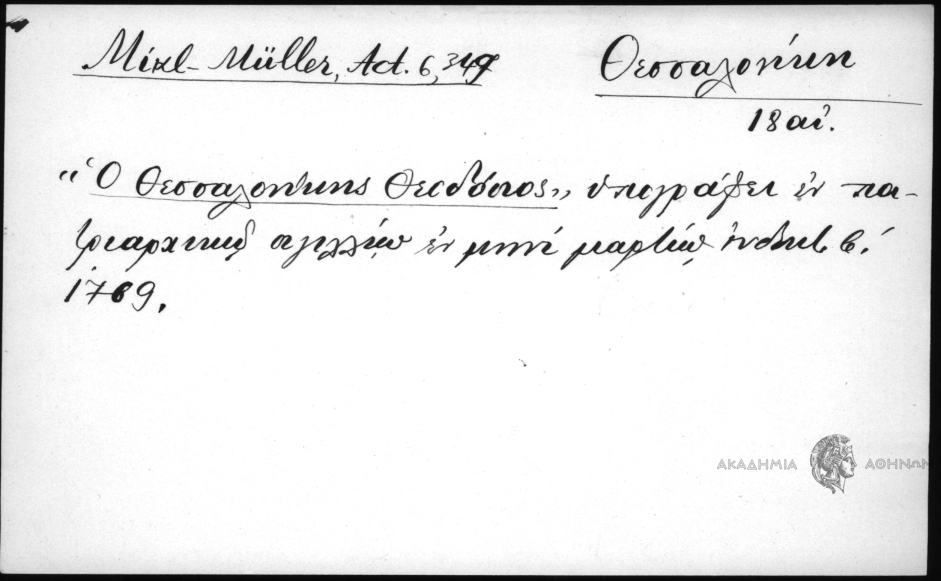 Μίκl-Müller, Act. 6, 349
Θεσσαλονίκη
18 αἰ.
"Ὁ Θεσσαλονίκης Θεοδόσιος,, ὑπογράφει ἐν πα-
τριαρχικῷ σιγιλλίῳ ἐν μηνὶ μαρτίῳ, ἰνδικτ. β΄.
1769.
ΑΚΑΔΗΜΙΑ ΑΘΗΝΩΝ